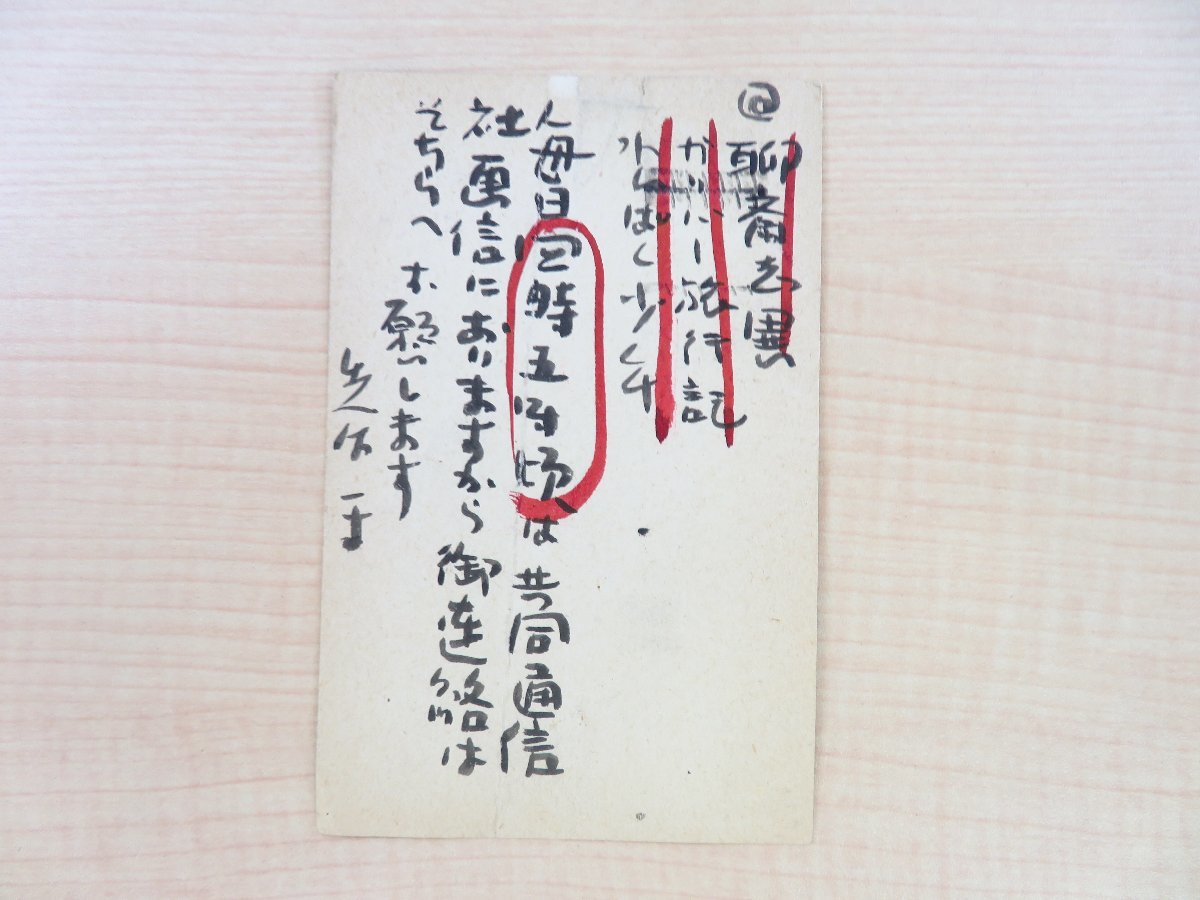 聊斎志異
ガリバー旅行記
わんぱく少年
毎日定時五時頃は共同通信
社画信におりますから御連絡は
そちらへお願いします